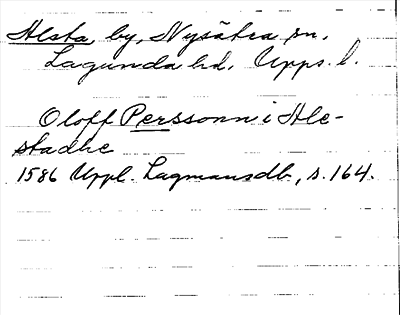 Alsta, by, Nysätra sn.
Lagunda hd. Upps. l.
Oloff Perssonn i Ale-
stadhe
1586 Uppl. Lagmansdb., s. 164.